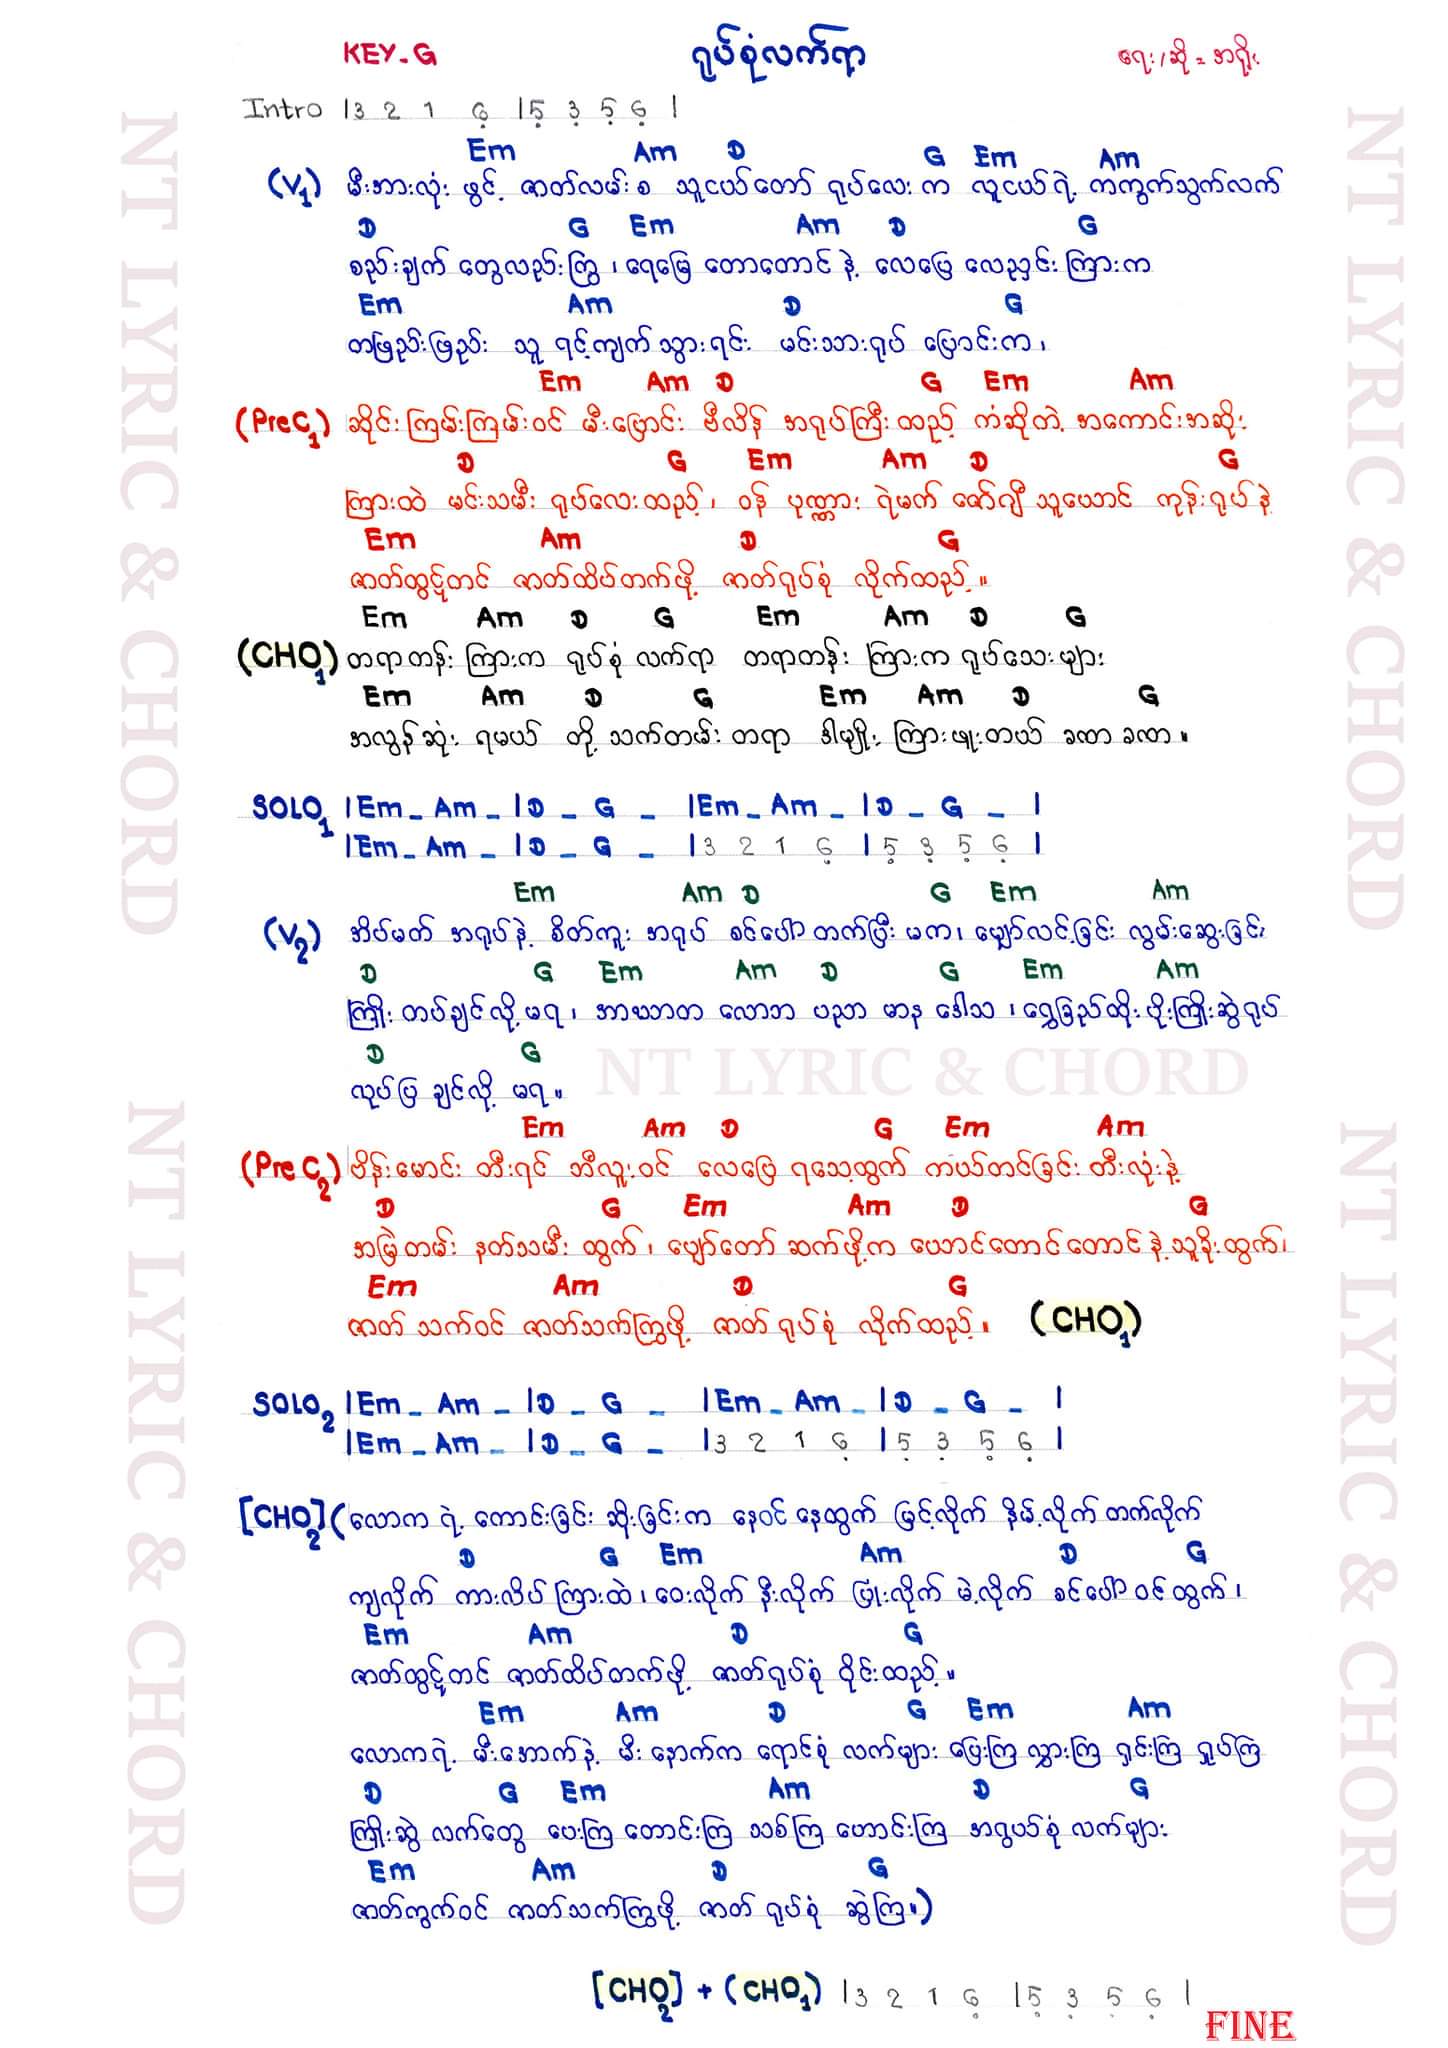 KEY-G ရုပ်စုံလက်ရာ ရေး/ဆို = အရိုး
Intro |3 2 1 6̣ |5̣ 3̣ 5̣ 6̣ |
Em Am D G Em Am
(V1) မီးအားလုံး ဖွင့် ဇာတ်လမ်း စ သူငယ်တော် ရုပ်လေး က လူငယ်ရဲ့ ကကွက်သွက်လက်
D G Em Am D G
စည်းချက် တွေလည်းကြွ ၊ ရေမြေ တောတောင် နဲ့ လေပြေ လေညှင်း ကြားက
Em Am D G
တဖြည်းဖြည်း သူ ရင့်ကျက်သွားရင်း မင်းသားရုပ် ပြောင်းက ၊
Em Am D G Em Am
(PreC1) ဆိုင်းကြမ်းကြမ်းဝင် မီးပြောင်း ဗီလိန် အရုပ်ကြီးထည့် ကံဆိုတဲ့ အကောင်းအဆိုး
D G Em Am D G
ကြားထဲ မင်းသမီး ရုပ်လေးထည့် ၊ ဝန် ပုဏ္ဏား ရဲမက် ဇော်ဂျီ သူယောင် ကုန်းရုပ် နဲ့
Em Am D G
ဇာတ်ထွဋ်တင် ဇာတ်ထိပ်တက်ဖို့ ဇာတ်ရုပ်စုံ လိုက်ထည့် ။
Em Am D G Em Am D G
(CHO1) တရာတန်း ကြားက ရုပ်စုံ လက်ရာ တရာတန်း ကြားက ရုပ်သေးများ
Em Am D G Em Am D G
အလွန်ဆုံး ရမယ် တို့ သက်တမ်း တရာ ဒါမျိုး ကြားဖူးတယ် ခဏာ ခဏာ ။
SOLO1 |Em - Am - |D - G - |Em - Am - |D - G - |
|Em - Am - |D - G - |3 2 1 6̣ |5̣ 3̣ 5̣ 6̣ |
Em Am D G Em Am
(V2) အိပ်မတ် အရုပ်နဲ့ စိတ်ကူး အရုပ် စင်ပေါ်တက်ပြီး မက ၊ မျှော်လင့်ခြင်း လွမ်းဆွေးခြင်း
D G Em Am D G Em Am
ကြိုး တပ်ချင်လို့ မရ ၊ အာဃာတ လောဘ ပညာ မာန ဒေါသ ၊ ရွှေခြည်ထိုး ပိုးကြိုးဆွဲရုပ်
D G
လုပ်ပြ ချင်လို့ မရ ။
NT LYRIC & CHORD
Em Am D G Em Am
(PreC2) ဗိန်းမောင်း တီးရင် ဘီလူးဝင် လေပြေ ရသေ့ထွက် ကယ်တင်ခြင်း တီးလုံးနဲ့
D G Em Am D G
အမြဲတမ်း နတ်သမီး ထွက် ၊ ပျော်တော် ဆက်ဖို့က ယောင်တောင်တောင် နဲ့ သူခိုးထွက် ၊
Em Am D G
ဇာတ် သက်ဝင် ဇာတ်သက်ကြွဖို့ ဇာတ် ရုပ်စုံ လိုက်ထည့် ။ (CHO1)
SOLO2 |Em - Am - |D - G - |Em - Am - |D - G - |
|Em - Am - |D - G - |3 2 1 6̣ |5̣ 3̣ 5̣ 6̣ |
[CHO2] (လောက ရဲ့ ကောင်းခြင်း ဆိုးခြင်းက နေဝင် နေထွက် မြင့်လိုက် နိမ့်လိုက် တက်လိုက်
D G Em Am D G
ကျလိုက် ကားလိပ်ကြားထဲ ၊ ဝေးလိုက် နီးလိုက် ပြုံးလိုက် မဲ့လိုက် စင်ပေါ် ဝင်ထွက် ၊
Em Am D G
ဇာတ်ထွဋ်တင် ဇာတ်ထိပ်တက်ဖို့ ဇာတ်ရုပ်စုံ ဝိုင်းထည့် ။
Em Am D G Em Am
လောကရဲ့ မီးအောက်နဲ့ မီး နောက်က ရောင်စုံ လက်များ ပြေးကြ လွှားကြ ရှင်းကြ ရှုပ်ကြ
D G Em Am D G
ကြိုးဆွဲ လက်တွေ ပေးကြ တောင်းကြ သစ်ကြ ဟောင်းကြ အရွယ်စုံ လက်များ
Em Am D G
ဇာတ်ကွက်ဝင် ဇာတ်သက်ကြွဖို့ ဇာတ် ရုပ်စုံ ဆွဲကြ ။)
[CHO2] + (CHO1) |3 2 1 6̣ |5̣ 3̣ 5̣ 6̣ |
FINE
NT LYRIC & CHORD
NT LYRIC & CHORD
NT LYRIC & CHORD
NT LYRIC & CHORD